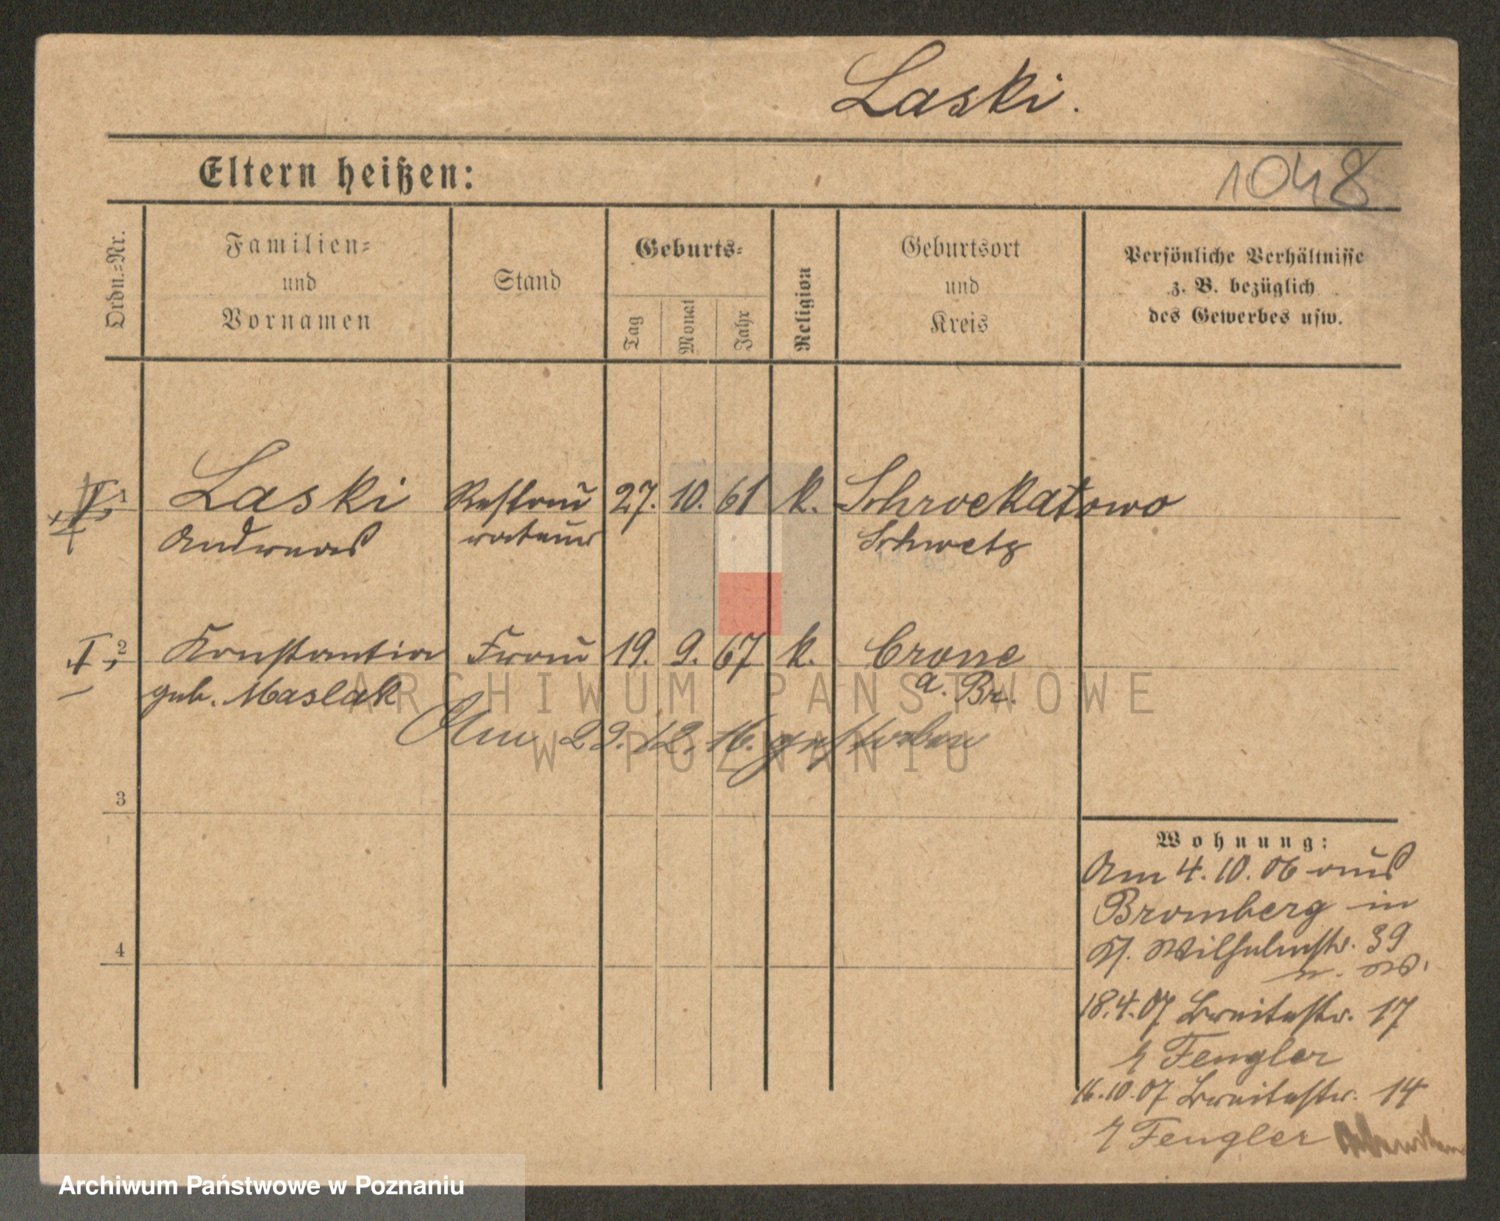 Laski.
Eltern heißen:
1048
Ordn.=Nr.
Familien=
und
Vornamen
Stand
Geburts=
Tag
Monat
Jahr
Religion
Geburtsort
und
Kreis
Persönliche Verhältnisse
z. B. bezüglich
des Gewerbes usw.
1 Laski Restau 27. 10. 61 k. Schroekatowo
Andreas rateur Schwetz
I 2 Konstantia Frau 19. 9. 67 k. Crone
geb. Maslak a. Br.
Am 29.12.16. gestorben
3
4
Wohnung:
Am 4.10.06 aus
Bromberg in
Wilhelmstr. 39
18.4.07 Breitestr. 17
Fengler
16.10.07 Breitestr. 14
Fengler
ARCHIWUM PAŃSTWOWE
W POZNANIU
Archiwum Państwowe w Poznaniu